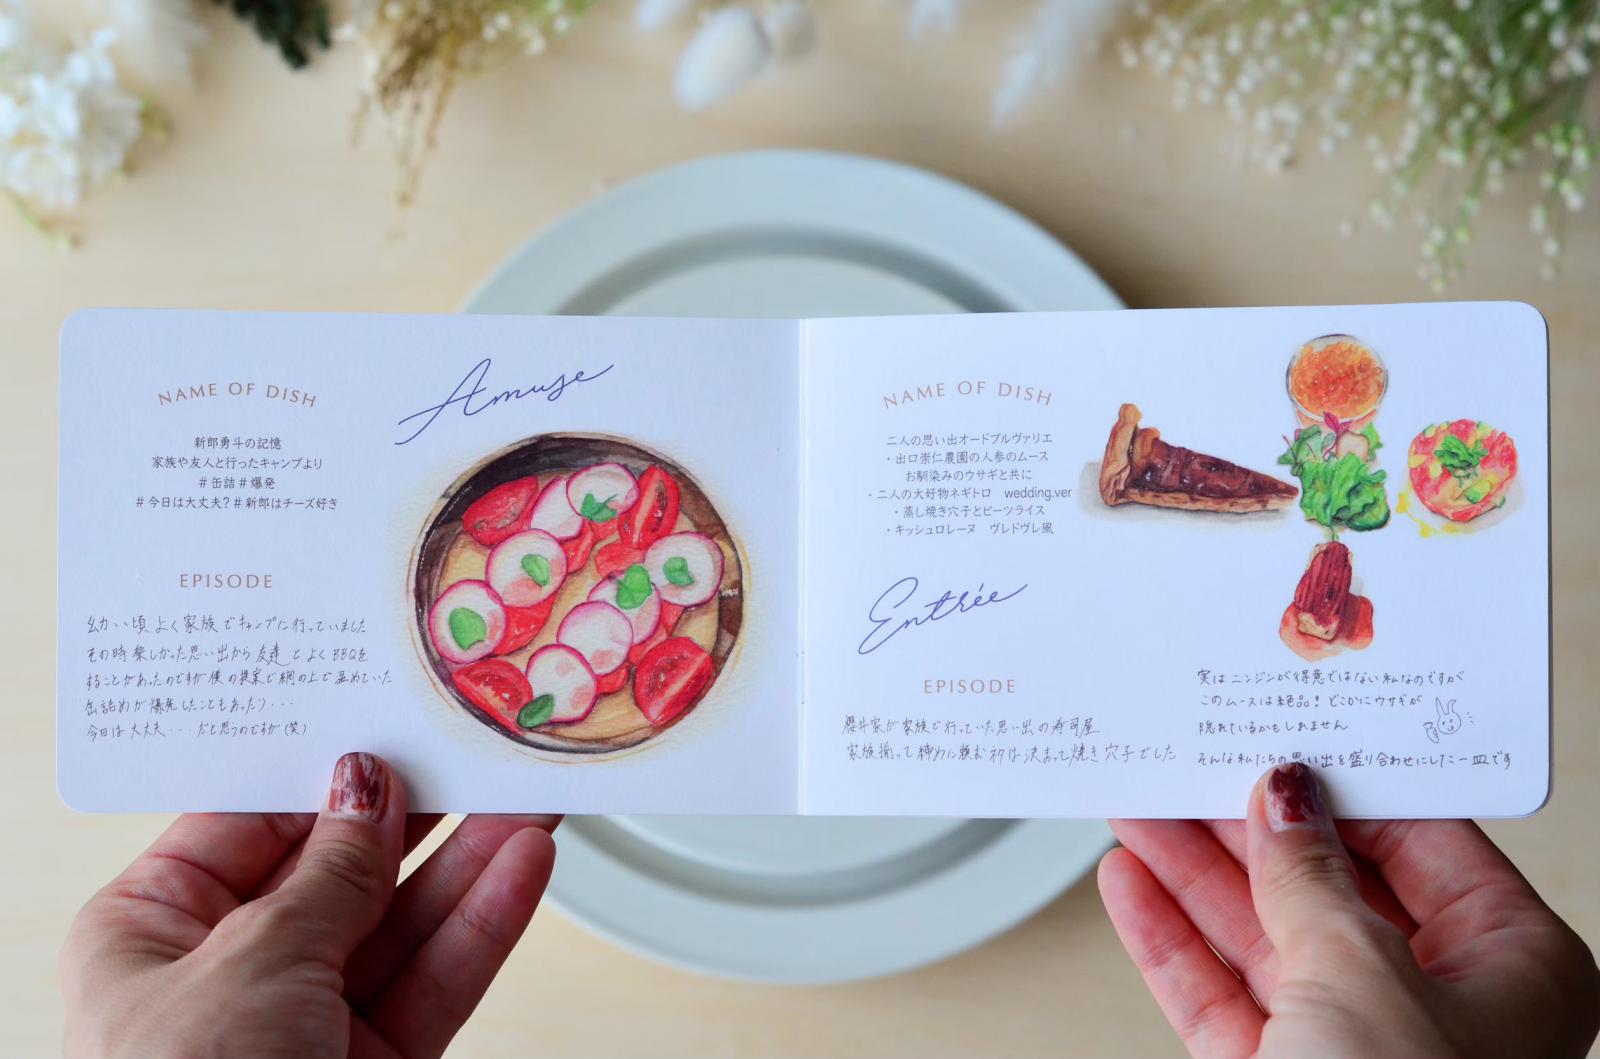 Amuse
NAME OF DISH
新郎勇斗の記憶
家族や友人と行ったキャンプより
#缶詰#爆発
#今日は大丈夫?#新郎はチーズ好き
EPISODE
幼い頃よく家族でキャンプに行っていました
その時楽しかった思い出から友達とよくBBQを
することがあったのですが僕の提案で網の上で温めていた
缶詰めが爆発したこともあったり・・・
今日は大丈夫・・・だと思うのですが(笑)
NAME OF DISH
二人の思い出オードブルヴァリエ
・出口崇仁農園の人参のムース
お馴染みのウサギと共に
・二人の大好物ネギトロ wedding.ver
・蒸し焼き穴子とビーツライス
・キッシュロレーヌ ヴレドヴレ風
Entrée
EPISODE
櫻井家が家族で行っていた思い出の寿司屋
家族揃って締めに頼むネタは決まって焼き穴子でした
実はニンジンが得意ではない私なのですが
このムースは絶品!どこかにウサギが
隠れているかもしれません
そんな私たちの思い出を盛り合わせにした一皿です